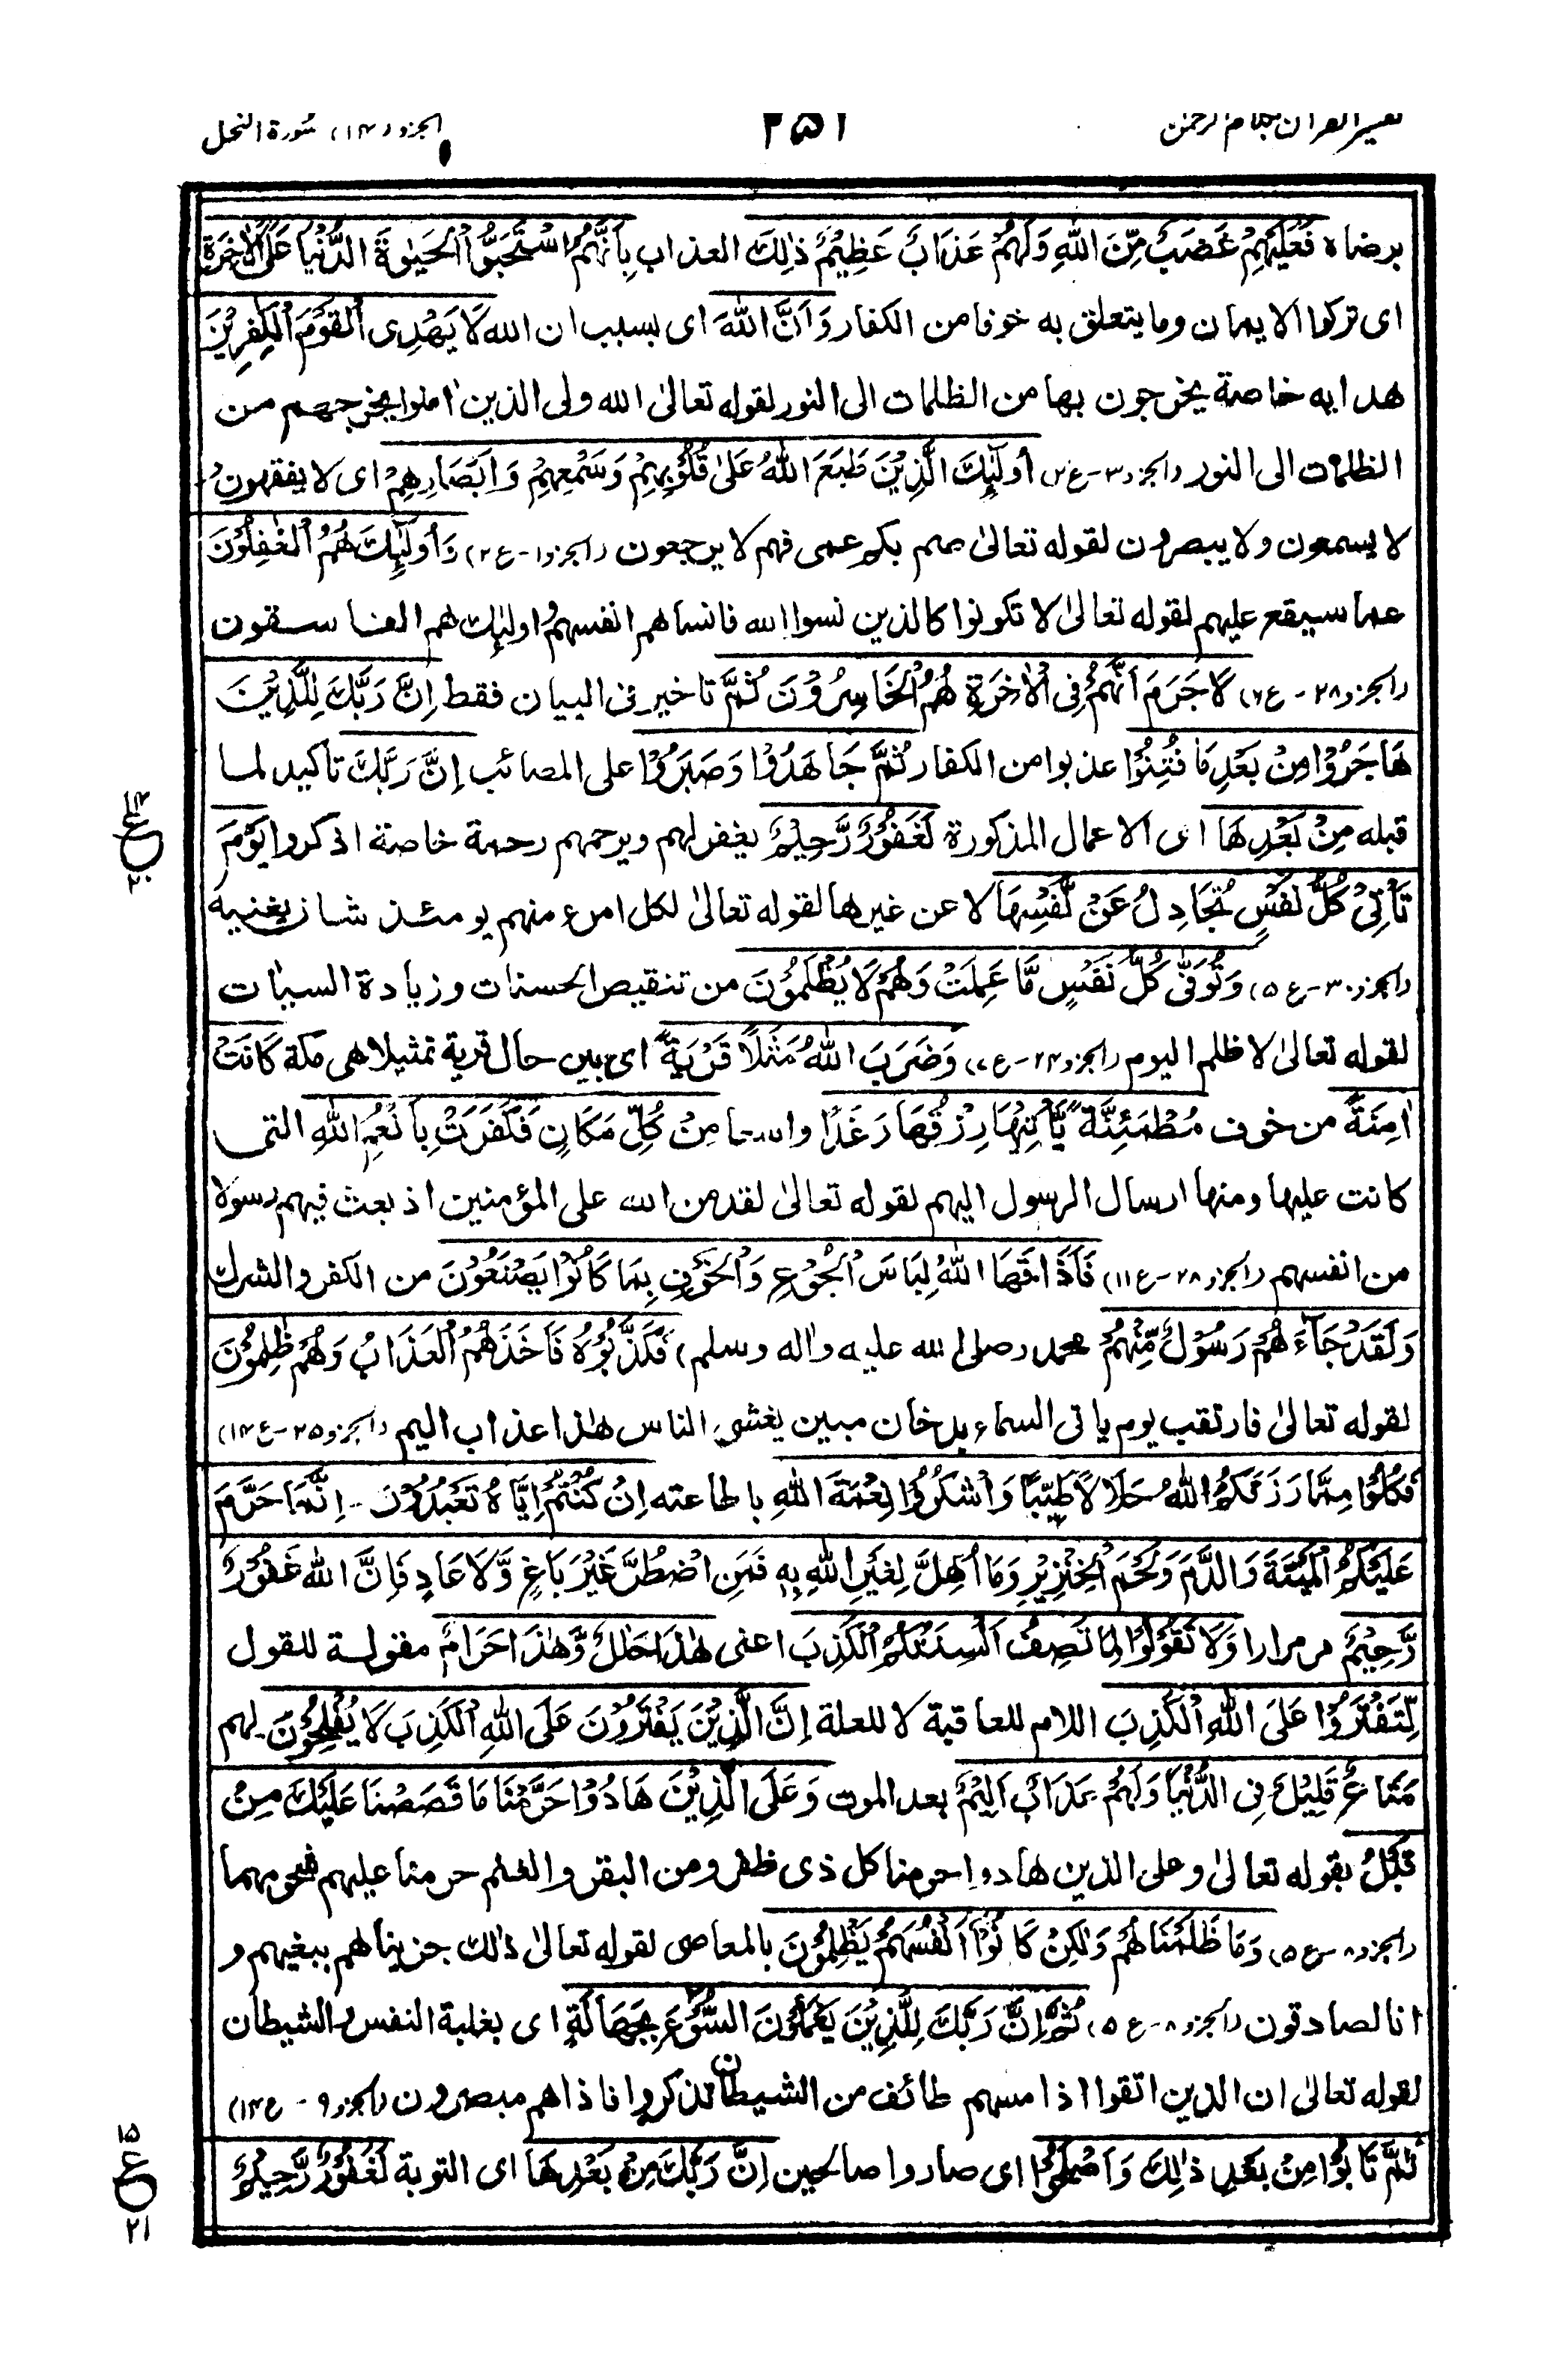 تفسير القرآن بكلام الرحمن ٢٥١ الجزو (١٤) سُورة النحل
برضاه فَعَلَيْهِمْ غَضَبٌ مِّنَ اللّٰهِ وَلَهُمْ عَذَابٌ عَظِيْمٌ ذٰلِكَ العذاب بِاَنَّهُمُ اسْتَحَبُّوا الْحَيٰوةَ الدُّنْيَا عَلَى الْاٰخِرَةِ
اى تركوا الايمان وما يتعلق به خوفا من الكفار وَاَنَّ اللّٰهَ اى بسبب ان الله لَا يَهْدِى الْقَوْمَ الْكٰفِرِيْنَ
هداية خاصة يخرجون بها من الظلمات الى النور لقوله تعالىٰ الله ولى الذين اٰمنوا يخرجهم من
الظلمات الى النور (الجزو ٣-ع ٢) اُولٰٓئِكَ الَّذِيْنَ طَبَعَ اللّٰهُ عَلٰى قُلُوْبِهِمْ وَسَمْعِهِمْ وَاَبْصَارِهِمْ اى لا يفقهون
لا يسمعون ولا يبصرون لقوله تعالىٰ صم بكم عمى فهم لا يرجعون (الجزو ١-ع ٢) وَاُولٰٓئِكَ هُمُ الْغٰفِلُوْنَ
عما سيقع عليهم لقوله تعالىٰ لا تكونوا كالذين نسوا الله فانساهم انفسهم اولٰئك هم الفاسقون
(الجزو ٢٨-ع ٦) لَا جَرَمَ اَنَّهُمْ فِى الْاٰخِرَةِ هُمُ الْخَاسِرُوْنَ ثُمَّ تاخير فى البيان فقط اِنَّ رَبَّكَ لِلَّذِيْنَ
هَاجَرُوْا مِنْ بَعْدِ مَا فُتِنُوْا عذبوا من الكفار ثُمَّ جَاهَدُوْا وَصَبَرُوْا على المصائب اِنَّ رَبَّكَ تاكيد لما
قبله مِنْ بَعْدِهَا اى الاعمال المذكورة لَغَفُوْرٌ رَّحِيْمٌ يغفر لهم ويرحمهم رحمة خاصة اذكروا يَوْمَ
تَاْتِىْ كُلُّ نَفْسٍ تُجَادِلُ عَنْ نَّفْسِهَا لا عن غيرها لقوله تعالىٰ لكل امرء منهم يومئذ شان يغنيه
(الجزو ٣٠-ع ٥) وَتُوَفّٰى كُلُّ نَفْسٍ مَّا عَمِلَتْ وَهُمْ لَا يُظْلَمُوْنَ من تنقيص الحسنات وزيادة السيئات
لقوله تعالىٰ لا ظلم اليوم (الجزو ٢٤-ع ٧) وَضَرَبَ اللّٰهُ مَثَلًا قَرْيَةً اى بين حال قرية تمثيلا هى مكة كَانَتْ
اٰمِنَةً من خوف مُطْمَئِنَّةً يَّاْتِيْهَا رِزْقُهَا رَغَدًا واسعا مِنْ كُلِّ مَكَانٍ فَكَفَرَتْ بِاَنْعُمِ اللّٰهِ التى
كانت عليها ومنها ارسال الرسول اليهم لقوله تعالىٰ لقد من الله على المؤمنين اذ بعث فيهم رسولا
من انفسهم (الجزو ٢٨-ع ١١) فَاَذَاقَهَا اللّٰهُ لِبَاسَ الْجُوْعِ وَالْخَوْفِ بِمَا كَانُوْا يَصْنَعُوْنَ من الكفر والشرك
وَلَقَدْ جَآءَهُمْ رَسُوْلٌ مِّنْهُمْ محمد (صلى الله عليه واٰله وسلم) فَكَذَّبُوْهُ فَاَخَذَهُمُ الْعَذَابُ وَهُمْ ظٰلِمُوْنَ
لقوله تعالىٰ فارتقب يوم ياتى السماء بدخان مبين يغشى الناس هٰذا عذاب اليم (الجزو ٢٥-ع ١٤)
فَكُلُوْا مِمَّا رَزَقَكُمُ اللّٰهُ حَلَالًا طَيِّبًا وَاشْكُرُوْا نِعْمَةَ اللّٰهِ بالطاعته اِنْ كُنْتُمْ اِيَّاهُ تَعْبُدُوْنَ - اِنَّمَا حَرَّمَ
عَلَيْكُمُ الْمَيْتَةَ وَالدَّمَ وَلَحْمَ الْخِنْزِيْرِ وَمَا اُهِلَّ لِغَيْرِ اللّٰهِ بِهٖ فَمَنِ اضْطُرَّ غَيْرَ بَاغٍ وَّلَا عَادٍ فَاِنَّ اللّٰهَ غَفُوْرٌ
رَّحِيْمٌ مر مرارا وَلَا تَقُوْلُوْا لِمَا تَصِفُ اَلْسِنَتُكُمُ الْكَذِبَ اعنى هٰذَا حَلٰلٌ وَّهٰذَا حَرَامٌ مقولة للقول
لِّتَفْتَرُوْا عَلَى اللّٰهِ الْكَذِبَ اللام للعاقبة لا للعلة اِنَّ الَّذِيْنَ يَفْتَرُوْنَ عَلَى اللّٰهِ الْكَذِبَ لَا يُفْلِحُوْنَ لهم
مَتَاعٌ قَلِيْلٌ فِى الدُّنْيَا وَلَهُمْ عَذَابٌ اَلِيْمٌ بعد الموت وَعَلَى الَّذِيْنَ هَادُوْا حَرَّمْنَا مَا قَصَصْنَا عَلَيْكَ مِنْ
قَبْلُ بقوله تعالىٰ وعلى الذين هادوا حرمنا كل ذى ظفر ومن البقر والغنم حرمنا عليهم شحومهما
(الجزو ٨-ع ٥) وَمَا ظَلَمْنَاهُمْ وَلٰكِنْ كَانُوْٓا اَنْفُسَهُمْ يَظْلِمُوْنَ بالمعاصى لقوله تعالىٰ ذٰلك جزيناهم ببغيهم و
انا لصادقون (الجزو ٨-ع ٥) ثُمَّ اِنَّ رَبَّكَ لِلَّذِيْنَ يَعْمَلُوْنَ السُّوْٓءَ بِجَهَالَةٍ اى بغلبة النفس والشيطان
لقوله تعالىٰ ان الذين اتقوا اذا مسهم طائف من الشيطان تذكروا فاذاهم مبصرون (الجزو ٩-ع ١٤)
ثُمَّ تَابُوْا مِنْ بَعْدِ ذٰلِكَ وَاَصْلَحُوْا اى صاروا صالحين اِنَّ رَبَّكَ مِنْ بَعْدِهَا اى التوبة لَغَفُوْرٌ رَّحِيْمٌ
١٤
ع
٢٠
١٥
ع
٢١